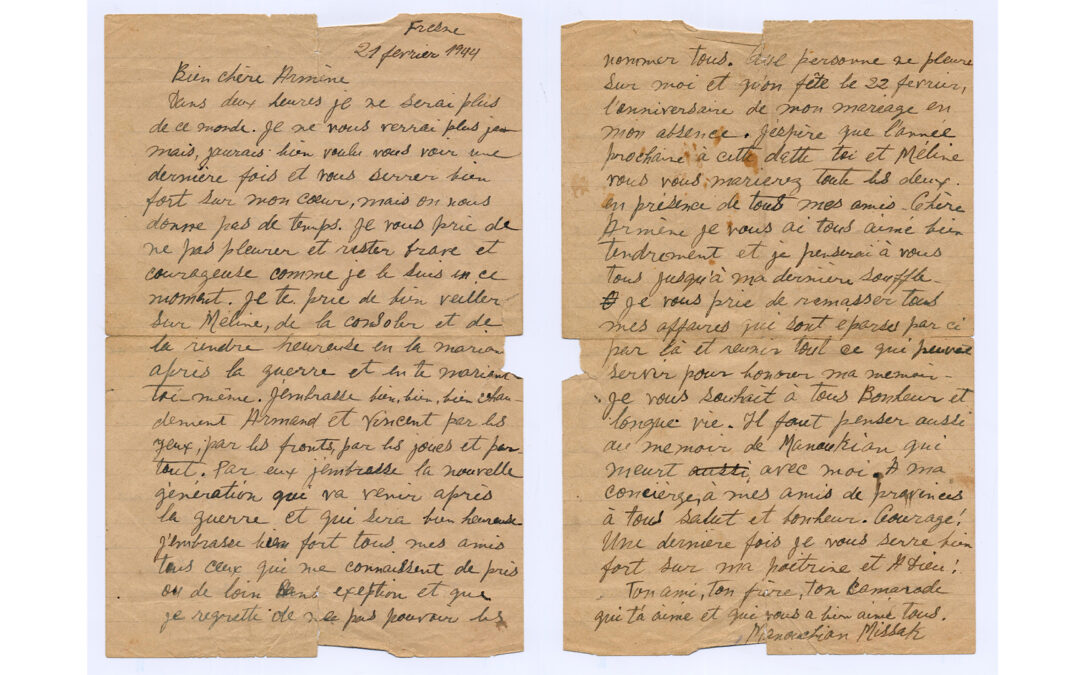 Fresne
21 fevrier 1944
Bien chère Armène
Dans deux heures je ne serai plus
de ce monde. Je ne vous verrai plus jam
mais, j'aurais bien voulu vous voir une
dernière fois et vous serrer bien
fort sur mon cœur, mais on nous
donne pas de temps. Je vous prie de
ne pas pleurer et rister brave et
courageuse comme je le suis en ce
moment. Je te prie de bien veiller
sur Meline, de la consoler et de
la rendre heureuse en la marian
après la guerre et en te mariant
toi-même. J'embrasse bien, bien, bien chau-
dement Armand et Vincent par les
yeux, par les fronts, par les joues et par
tout. Par eux j'embrasse la nouvelle
géneration qui va venir après
la guerre et qui sera bien heureuse
J'embrasse bien fort tous mes amis
tous ceux qui me connaissent de près
ou de loin sans exeption et que
je regrette de ne pas pouvoir les
nommer tous. Que personne ne pleure
sur moi et qu'on fête le 22 fevrier,
l'anniversaire de mon mareage en
mon absence. J'éspère que l'année
prochaine à cette datte toi et Méline
vous vous marierez toute les deux.
en présence de tous mes amis. Chère
Armène je vous ai tous aimé bien
tendrement et je penserai à vous
tous jusqu'à ma dernière souffle.
Je vous prie de remasser tous
mes affaires qui sont éparses par ci
par là et reunir tout ce qui peuvent
servir pour honorer ma memoir.
Je vous souhait à tous Bonheur et
longue vie. Il faut penser aussi
au memoir de Manoukian qui
meurt aussi avec moi. A ma
concièrge, à mes amis de provinces
à tous salut et bonheur. Courage!
Une dernière fois je vous serre bien
fort sur ma poitrine et A Dieu!
Ton ami, ton frère, ton camarade
qui t'a aimé et qui vous a bien aimé tous.
Manouchian Missak